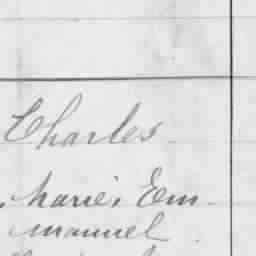 Charles
Marie, Em-
manuel